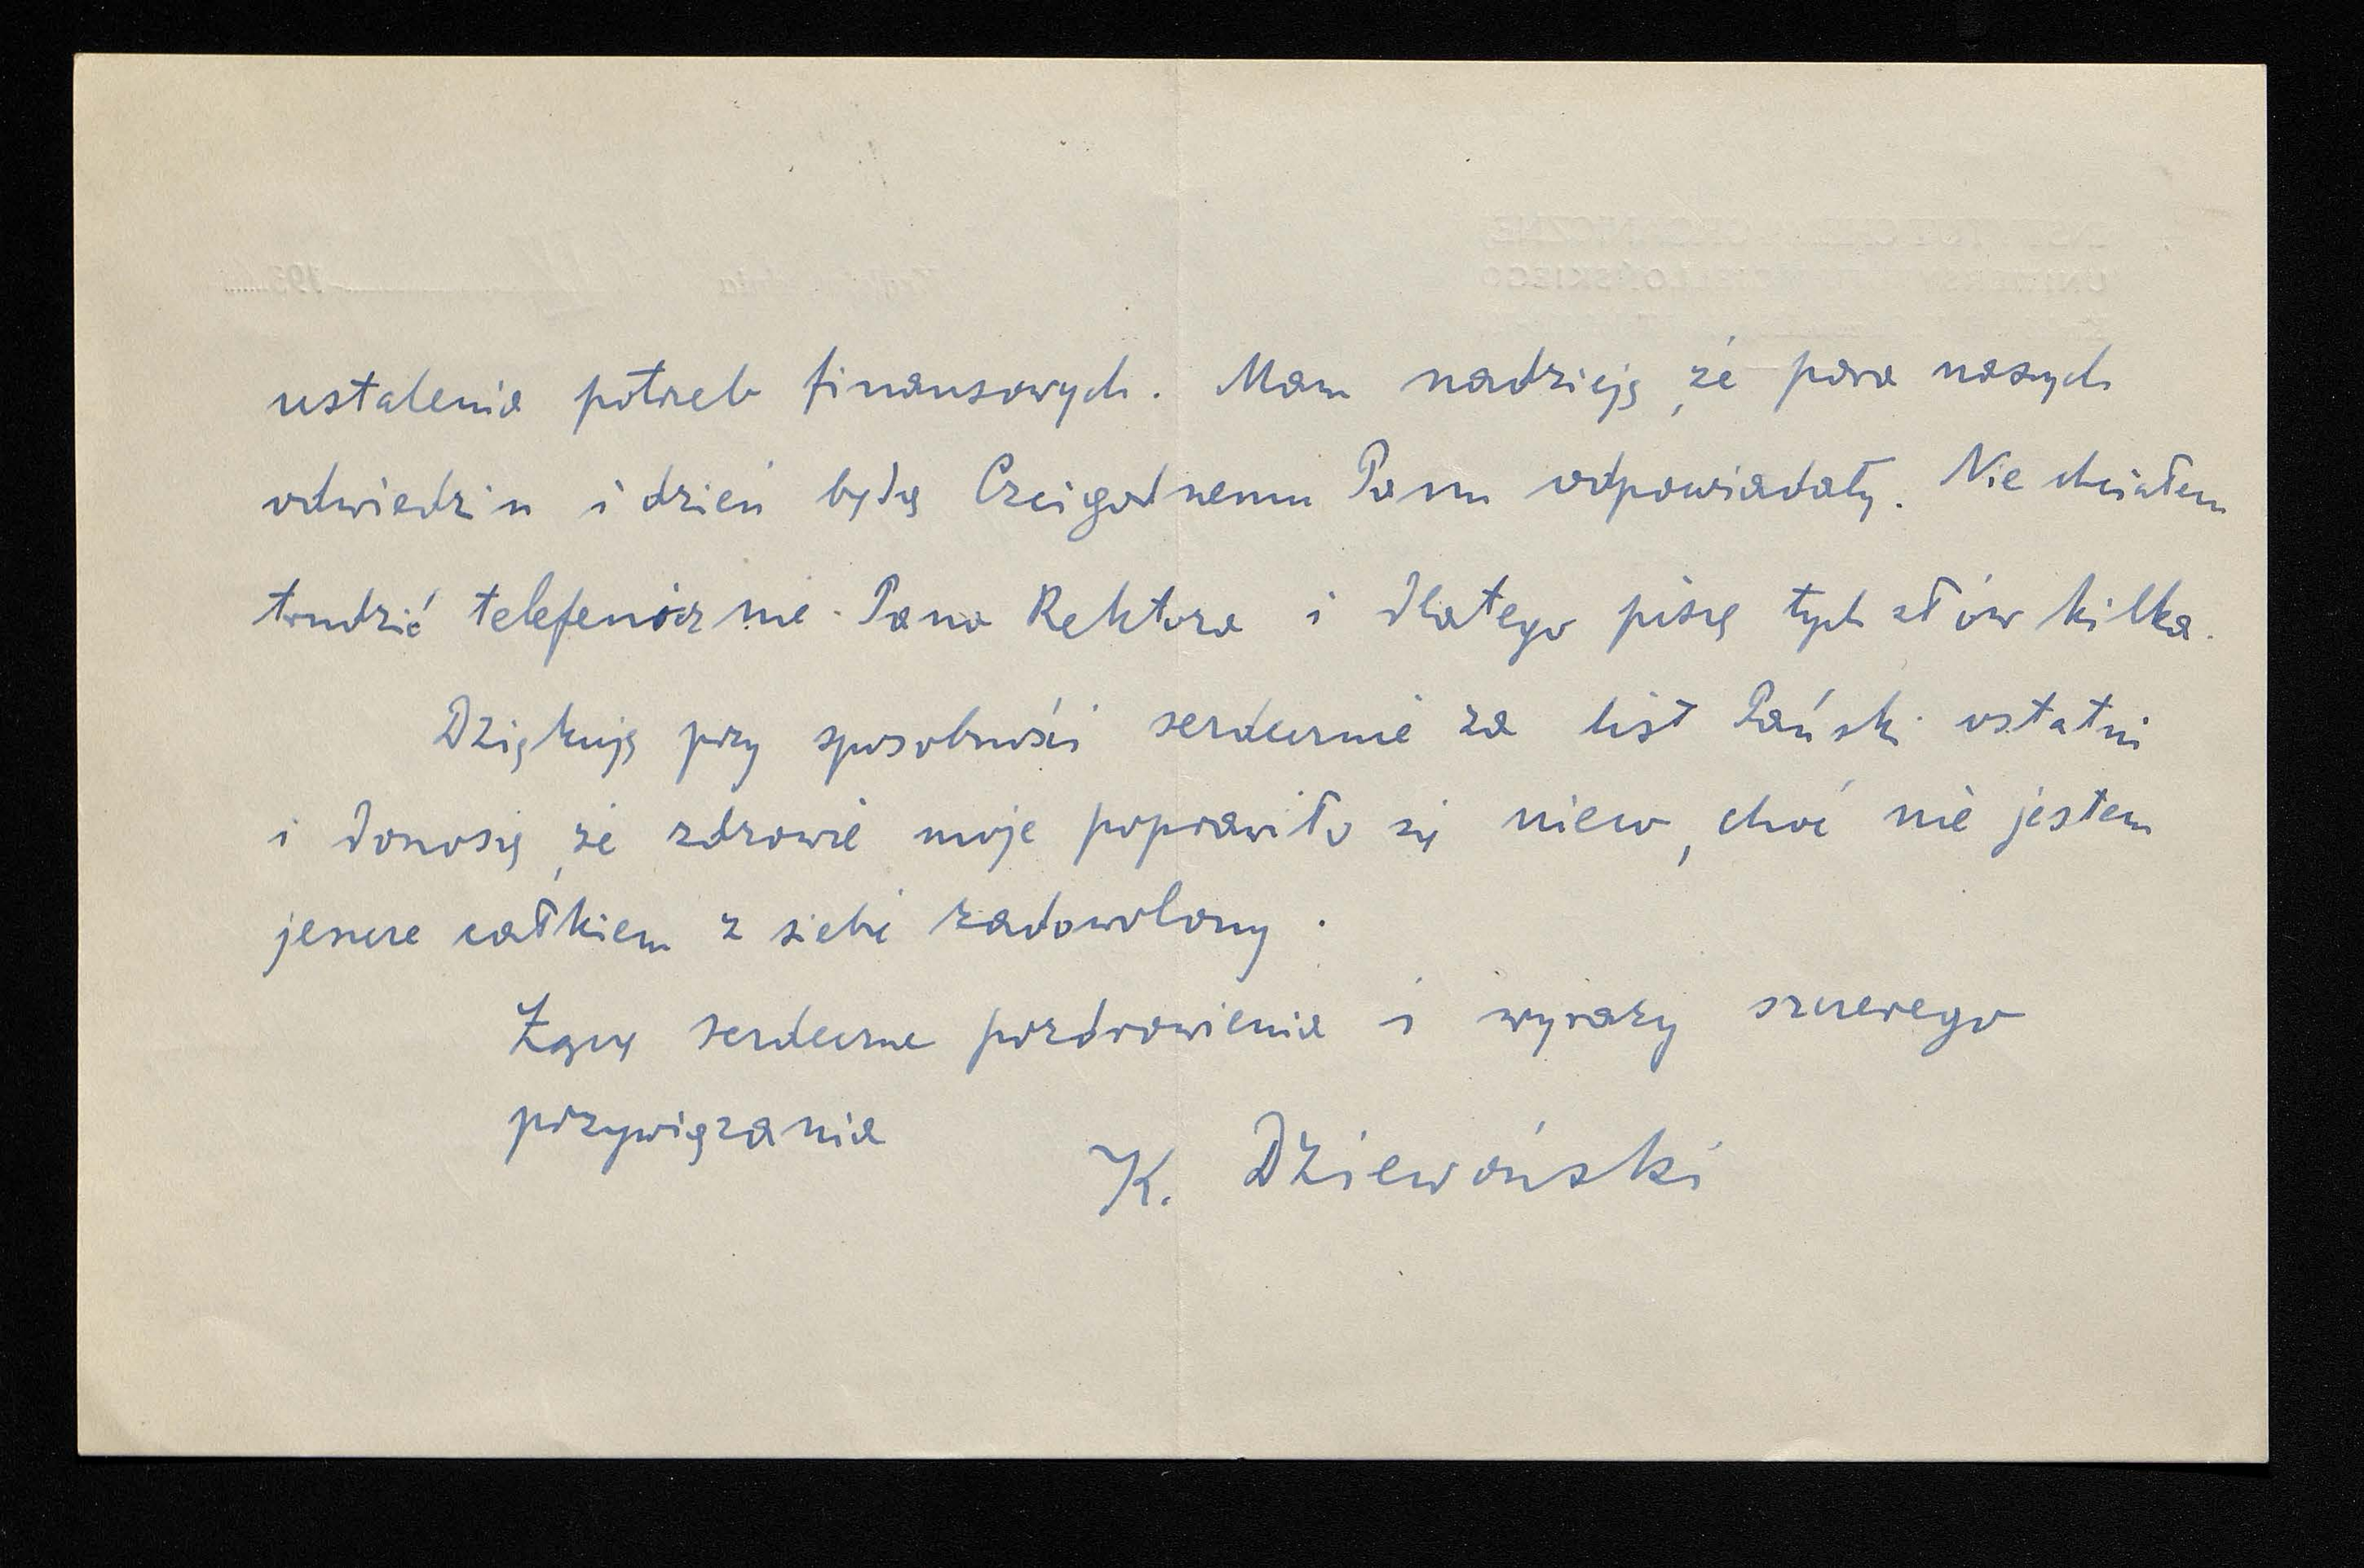 ustalenia potrzeb finansowych. Mam nadzieję, że pora naszych
odwiedzin i dzień będą Czcigodnemu Panu odpowiadały. Nie chciałem
trudzić telefonicznie Pana Rektora i dlatego piszę tych słów kilka.
Dziękuję przy sposobności serdecznie za list Pański ostatni
i donoszę, że zdrowie moje poprawiło się nieco, choć nie jestem
jeszcze całkiem z siebie zadowolony.
Łączę serdeczne pozdrowienia i wyrazy szczerego
przywiązania
K. Dziewoński